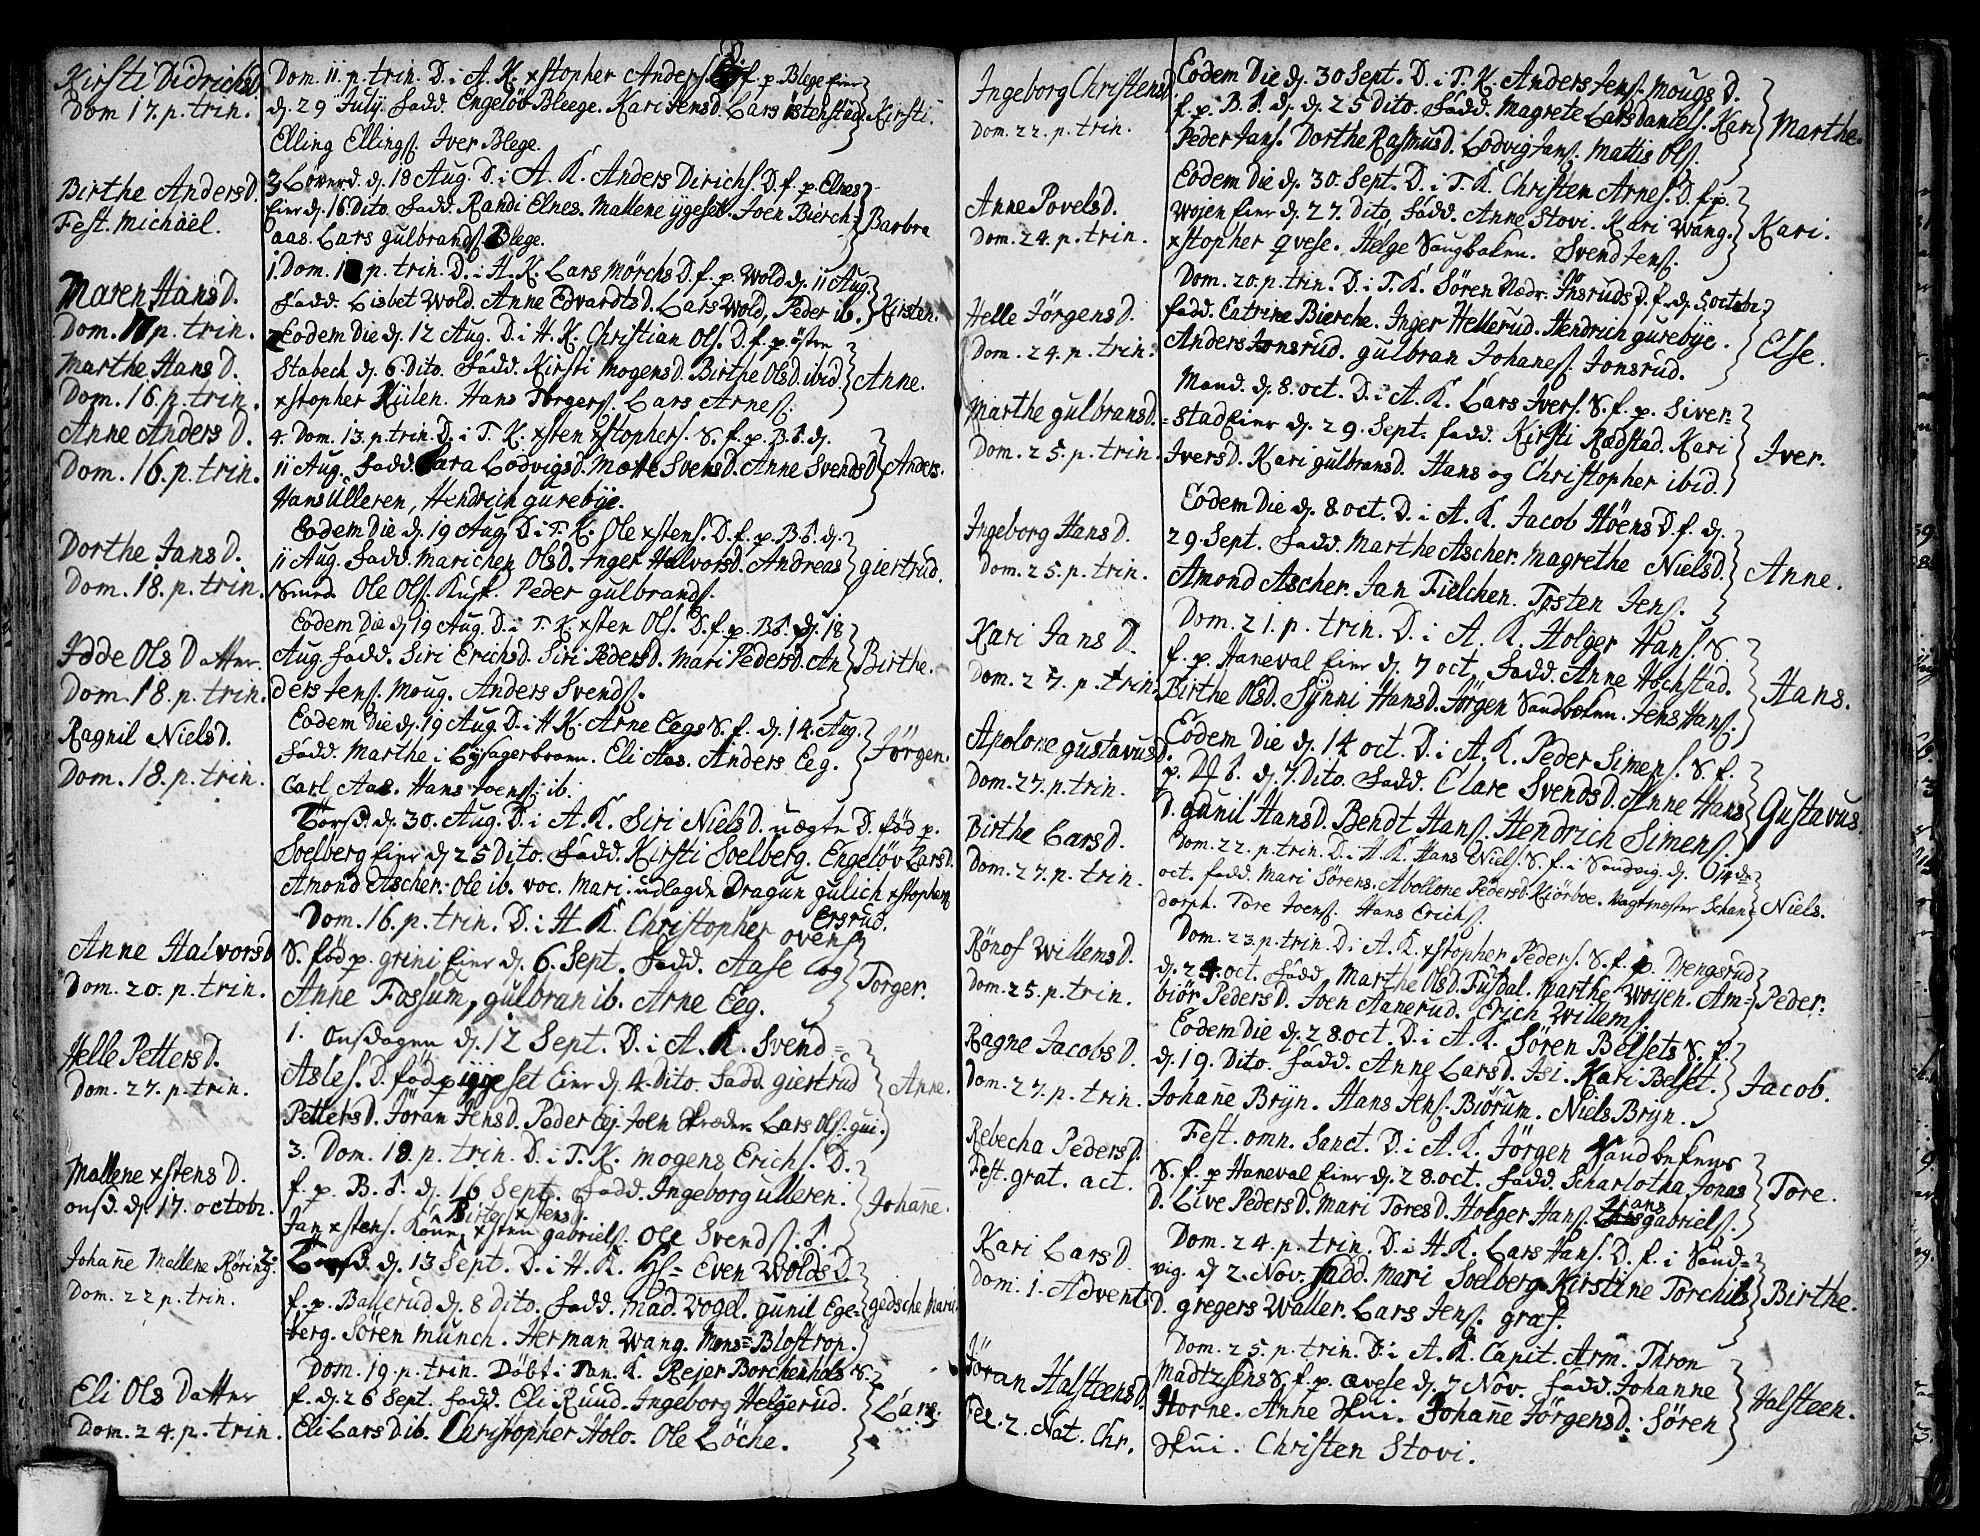 Kirsti Didrichsd.
Dom 17. p. trin.
Birthe Andersd.
Fest. Michael.
Maren Hans D.
Dom. 17 p. trin.
Marthe Hans D.
Dom. 16. p. trin.
Anne Anders D.
Dom. 16. p. trin.
Dorthe Jans D.
Dom. 18. p. trin.
Idde Ols Datter.
Dom. 18. p. trin.
Ragnil Nielsd.
Dom. 18. p. trin.
Anne Halvorsd
Dom. 20. p. trin.
Helle Petters D.
Dom. 27. p. trin.
Mallene xstens D.
onsd. d. 17. octobr.
Johane Mallene Röring.
Dom. 22 p. trin.
Eli Ols Datter
Dom. 24. p. trin.
Dom. 11. p. trin. D. i A. K. xstopher Anders. f. p. Blege Eier
d. 29 July. Fadd. Engelöv Bleege. Kari Jensd. Lars Istenstad. Kirsti.
Elling Ellings. Iver Blege.
3 Löverd. d. 18 Aug. D. i A. K. Anders Dirichs. D. f. p. Elnes
Eier d. 16. Dito. Fadd. Randi Elnes. Mallene ÿgeset. Joen Bierch= Barbra
aas. Lars gulbrands. Blege.
1. Dom. p. trin. D. i H. K. Lars Mörchs D. f. p. Wold d. 11 Aug.
Fadd. Lisbet Wold. Anne Edvardts D. Lars Wold, Peder ib. Kirsten.
2 Eodem Die d. 12 Aug. D. i H. K. Christian Ols. D. f. p. östre
Stabech d. 6. Dito. Fadd. Kirsti Mogensd. Birthe Olsd. ibid. Anne.
xstopher Kiilen. Hans Torgers. Lars Arnes.
4. Dom. 13. p. trin. D. i T. K. xsten xstophers. S. f. p. B. S. d.
11 Aug. Fadd. Sara Lodvigsd. Mætte Svensd. Anne Svendsd Anders.
Hans Ulleren, Hendrich gurebÿe.
Eodem Die d. 19 Aug. D. i T. K. Ole xstens. D. f. p. B. S. d.
11 Aug. Fadd. Marichen Olsd. Inger Halvorsd. Andreas giertrud.
Smed. Ole Ols. Kusk. Peder gulbrands.
Eodem Die d 19 Aug. D. i T. K. xsten Ols. D. f. p. B. S. d. 18
Aug. Fadd. Siri Erichsd. Siri Pedersd. Mari Pedersd. An Birthe.
ders Jens. Moug. Anders Svends.
Eodem Die d. 19 Aug. D. i H. K. Arne Eegs S. f. d. 14. Aug.
Fadd. Marthe i Lysagerbraaen. Eli Aas. Anders Eeg. Jörgen.
Carl Aas. Hans Joens. ib.
Torsd. d. 30. Aug. D. i A. K. Siri Niels D. uægte D. föd p.
Soelberg Eier d 25 Dito. Fadd. Kirsti Soelberg. Engelöv Larsd.
Amond Ascher. Ole ib. voc. Mari. udlagde Dragun gulich xstophers
Ersrud.
Dom. 16. p. trin. D. i H. K. Christopher ovens
S. föd p. grini Eier d. 6. Sept. Fadd. Aase og
Anne Fossum, gulbran ib. Arne Eeg. Torger.
1. Onsdagen d. 12 Sept. D. i A. K. Svend=
Asles. D. föd p iggeset Eier d. 4. Dito. Fadd. giertrud Anne.
Petters D. Jöran Jensd. Peder Eej. Joen Skræder. Lars Ols. gui.
3. Dom. 18. p. trin. D. i T. K. Mogens Erichs. D.
f. p. B. S. d. 16 Sept. Fadd. Ingeborg Ulleren. Johane.
Birte xstensd.
Jan xstens. xsten gabriels. Ole Svends.
2. Torsd. d. 13 Sept. D. i H. K. Hs= Even Wolds D.
f. p. Ballerud d. 8 Dito. Fadd. Mad. Vogel. gunil Ege= gedsche Maria.
=berg. Sören Munch. Herman Wang. Mons= Blostrop.
Dom. 19. p. trin. Döbt i Tan. K. Rejer Borchenhols S.
f. d. 26 Sept. Fadd. Eli Ruud. Ingeborg Helgerud. Lars.
Eli Lars D ib. Christopher Holo. Ole Löche.
Ingeborg Christensd.
Dom. 22. p. trin.
Anne Povelsd.
Dom. 24. p. trin.
Helle Jörgens D.
Dom. 24. p. trin.
Marthe gulbransd.
Dom. 25. p. trin.
Ingeborg Hans D.
Dom. 25. p. trin.
Kari Jans D.
Dom. 27. p. trin.
Apolone gustavusd.
Dom. 27. p. trin.
Birthe Lars D.
Dom. 27. p. trin.
Rönof Willems D.
Dom. 25. p. trin.
Ragne Jacobs D.
Dom. 27. p. trin.
Rebecha Pedersd.
Fest. grat. act.
Kari Lars D.
Dom. 1. Advent.
Jöran Halsteensd.
Fer. 2. Nat. Chr.
Eodem Die d. 30 Sept. D. i T. K. Anders Jens. Mougs D.
f. p. B. S. d. d. 25 Dito. Fadd. Magrete Lars Daniels. Kari Marthe.
Peder Jans. Dorthe Rasmusd. Lodvig Jans. Mattis Ols.
Eodem Die d. 30. Sept. D. i T. K. Christen Arnes. D. f. p.
Wojen Eier d. 27. Dito. Fadd. Anne Stovi. Kari Wang. Kari.
xstopher qvese. Helge Saugbaken. Svend Jens.
Dom. 20. p. trin. D. i T. K. Sören Nedr. Insruds D. f. d. 5 octobr.
Fadd. Catrine Bierche. Inger Hellerud. Hendrich gurebÿe. Else.
Anders Jonsrud. gulbran Johanes. Jonsrud.
Mand. d. 8. oct. D. i A. K. Lars Ivers. S. f. p. Siver=
=stad Eier d. 29. Sept. Fadd. Kirsti Rædstad. Kari Iver.
Iversd. Kari gulbransd. Hans og Christopher ibid.
Eodem Die d. 8 oct. D. i A. K. Jacob Höens D. f. d.
29. Sept. Fadd. Marthe Ascher. Magrethe Nielsd. Anne.
Amond Ascher. Jan Fielchen. Tosten Jens.
Dom. 21. p. trin. D. i A. K. Holger Hans. S.
f. p. Haneval Eier d. 7 oct. Fadd. Anne Hochstad. Hans.
Birthe Olsd. Sÿnni Hansd. Jörgen Sandbaken. Jens Hans.
Eodem Die d. 14 oct. D. i A. K. Peder Simens. S. f.
p. S. d. 7. Dito. Fadd. Clare Svends D. Anne Hans Gustavus.
D. gunil Hans D. Bendt Hans. Hendrich Simens.
Dom. 22. p. trin. D. i H. K. Hans Niels. S. f. i Sandvig. d. 14de
oct. Fadd. Mari Sörens. Abollone Pedersd. Kiörboe. Vagtmester Schan= Niels.
dorph. Tore Joens. Hans Erichs.
Dom. 23. p. trin. D. i A. K. xstopher Peders. S. f. p. Drengsrud
d. 24. oct. Fadd. Marthe Ols D. Füsdal. Marthe Woijen. Am= Peder.
biör Peders D. Joen Aanerud. Erich Willems.
Eodem Die d. 28. oct. D. i A. K. Sören Belsets S. f.
d. 19. Dito. Fadd. Anne Lars D. Isi. Kari Belset. Jacob.
Johane Brÿn. Hans Jens. Biörum. Niels Brÿn.
Fest. omn. Sanct. D. i A. K. Jörgen Sandbekens
S. f. p Haneval Eier d. 28. oct. Fadd. Scharlotha Jonas Tore.
D. Live Peders D. Mari Tores D. Holger Hans. Hans gabriels.
Dom. 24. p. trin. D. i H. K. Lars Hans. D. f. i Sand=
vig. d 2. Nov. Fadd. Mari Soelberg. Kirstine Torchils Birthe.
D. gregers Waller. Lars Jens. graf.
Dom. 25. p. trin. D. i A. K. Capit. Arm. Thron
Madtzsens S. f. p. qvese d. 7 Nov. Fadd. Johanne Halsteen.
Horne. Anne Skui. Johane Jörgensd. Sören
Skui. Christen Stovi.